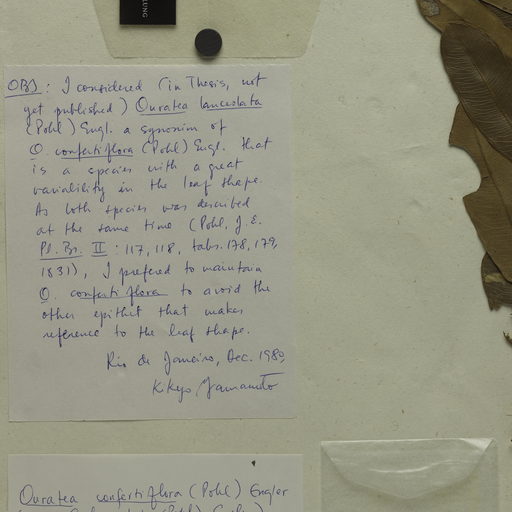 LUNG
OBS: I considered (in Thesis, not
yet published) Ouratea lanceolata
(Pohl) Engl. a synonim of
O. confertiflora (Pohl) Engl. that
is a species with a great
variability in the leaf shape.
As both species was described
at the same time (Pohl, J. E.
Pl. Br. II : 117, 118, tabs. 178, 179,
1831), I prefered to maintain
O. confertiflora to avoid the
other epithit that makes
reference to the leaf shape.
Rio de Janeiro, Dec. 1989
K. Kiyo Yamamoto
Ouratea confertiflora (Pohl) Engler
(Pohl)